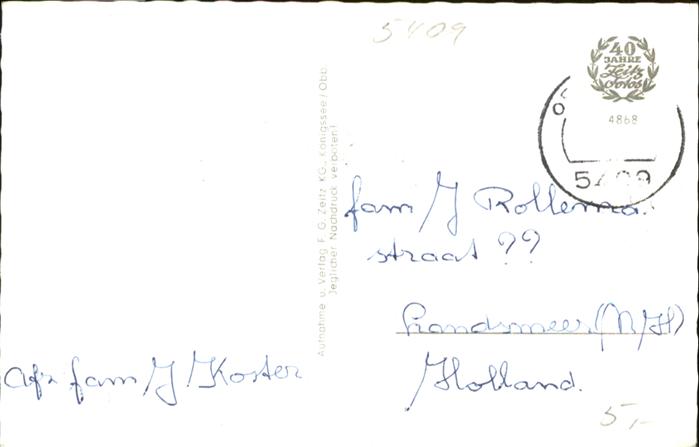 5409
40
JAHRE
Zeitz
Fotos
4868
5409
Aufnahme u. Verlag F. G. Zeitz KG., Königssee/Obb.
(Jeglicher Nachdruck verboten)
fam J Rollema.
straat ??
Landsmeer (N/H)
Holland.
Afz fam J Koster
5,-